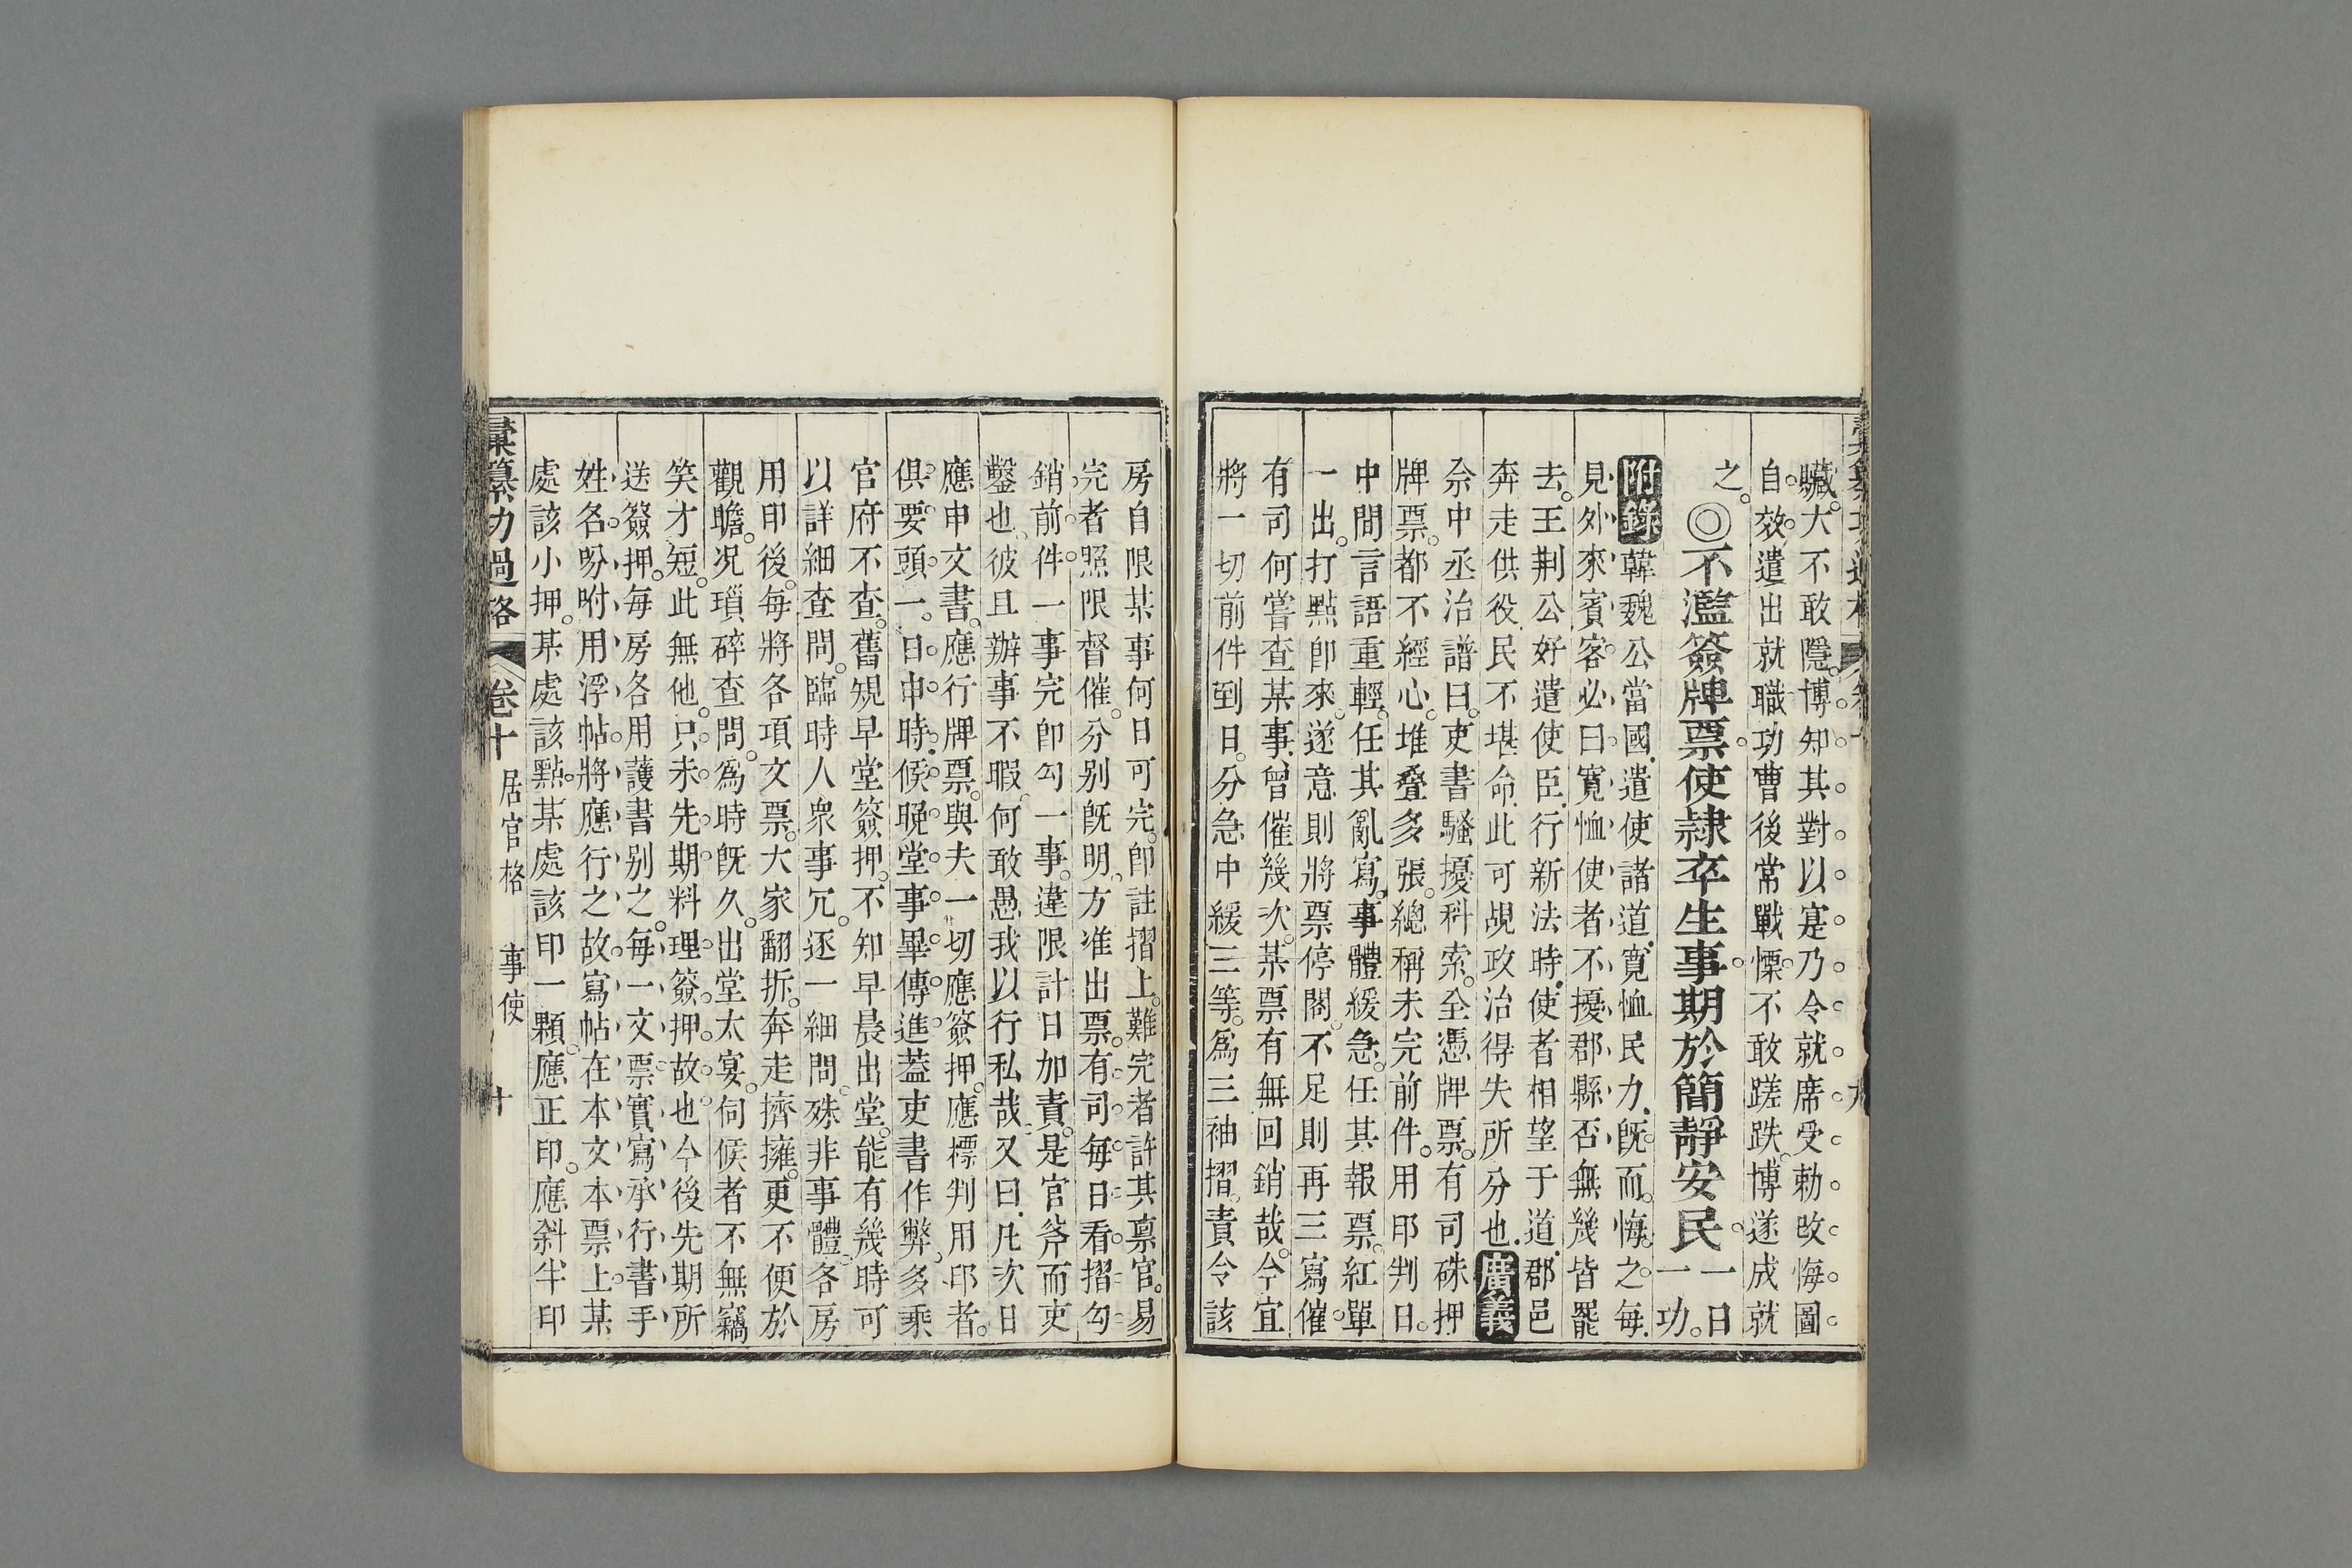 臟大不敢隱博知其對以寔乃令就席受勅改悔圖
自效遣出就職功曹後常戰慄不敢蹉跌博遂成就
之
◎不濫簽牌票使隷卒生事期於簡靜安民一日一功
附錄韓魏公當國遣使諸道寬恤民力旣而悔之每
見外來賓客必曰寬恤使者不擾郡縣否無幾皆罷
去王荆公好遣使臣行新法時使者相望于道郡邑
奔走供役民不堪命此可覘政治得失所分也廣義
佘中丞治譜曰吏書騷擾科索全憑牌票有司硃押
牌票都不經心堆叠多張總稱未完前件用印判日
中間言語重輕任其亂寫事體緩急任其報票紅單
一出打點卽來遂意則將票停閣不足則再三寫催
有司何嘗查某事曾催幾次某票有無回銷哉今宜
將一切前件到日分急中緩三等爲三袖摺責令該
房自限某事何日可完卽註摺上難完者許其禀官易
完者照限督催分别旣明方准出票有司每日看摺勾
銷前件一事完卽勾一事違限計日加責是官斧而吏
鑿也彼且辦事不暇何敢愚我以行私哉又曰凡次日
應申文書應行牌票與夫一切應簽押應標判用印者
俱要頭一日申時候晚堂事畢傳進蓋吏書作弊多乘
官府不查舊規早堂簽押不知早晨出堂能有幾時可
以詳細查問臨時人衆事冗逐一細問殊非事體各房
用印後每將各項文票大家翻拆奔走擠擁更不便於
觀瞻况瑣碎查問爲時旣久出堂太宴伺候者不無竊
笑才短此無他只未先期料理簽押故也今後先期所
送簽押每房各用護書别之每一文票實寫承行書手
姓名吩咐用浮帖將應行之故寫帖在本文本票上某
處該小押某處該點某處該印一顆應正印應斜半印
彙纂功過格 卷十 居官格 事使 十